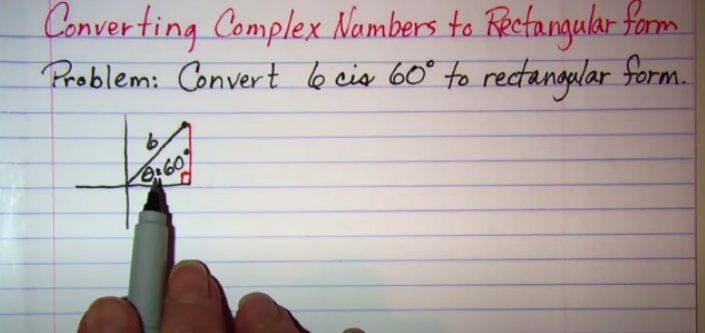 Converting Complex Numbers to Rectangular form
Problem: Convert 6 cis 60° to rectangular form.
6
θ=60°